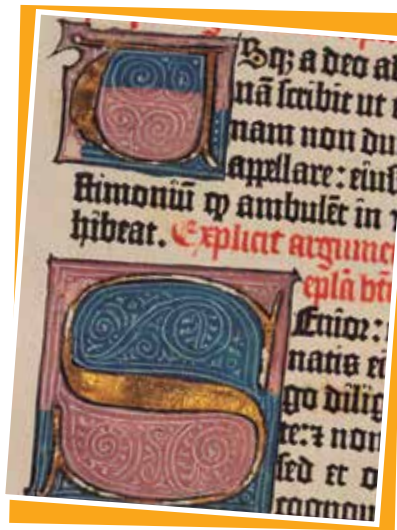 USqꝫ a deo
nā scribit ut
nam non du
appellare: eius
stimoniū ꝙ ambulēt in
hibeat. Explicit argume
epl̄a
SEnior:
natis ei
go dilig
te:⁊ non
sed et o
cognou